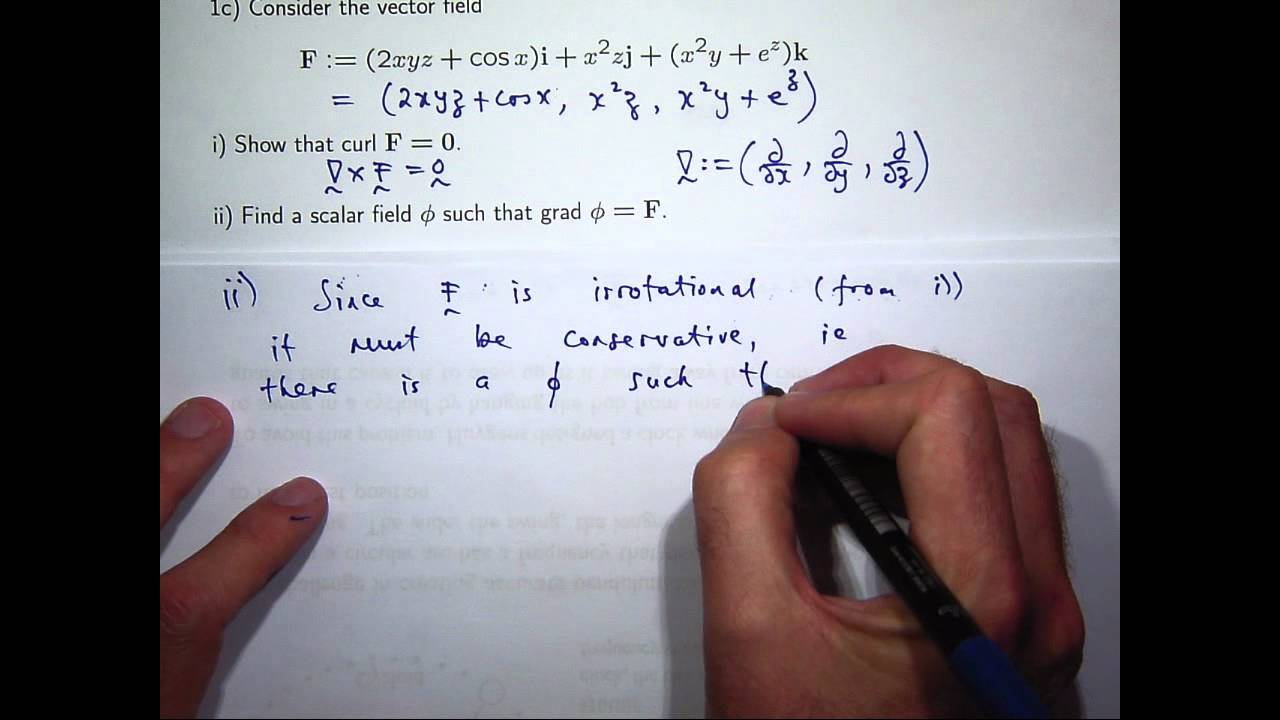 1c) Consider the vector field
F := (2xyz + cos x)i + x²zj + (x²y + e^z)k
= (2xyz + cos x, x²z, x²y + e^z)
i) Show that curl F = 0.
∇ × F = 0
∇ := (∂/∂x, ∂/∂y, ∂/∂z)
ii) Find a scalar field ϕ such that grad ϕ = F.
ii) Since F is irrotational (from i))
it must be conservative, ie
there is a ϕ such